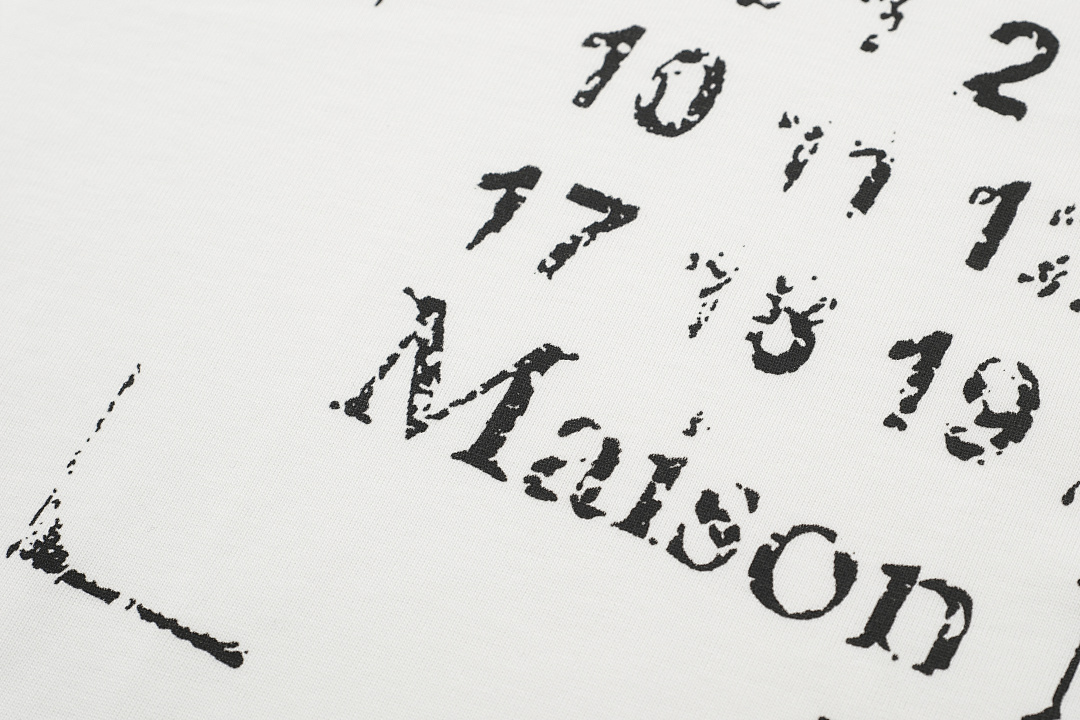 2
10 11 1
17 18 19
Maison